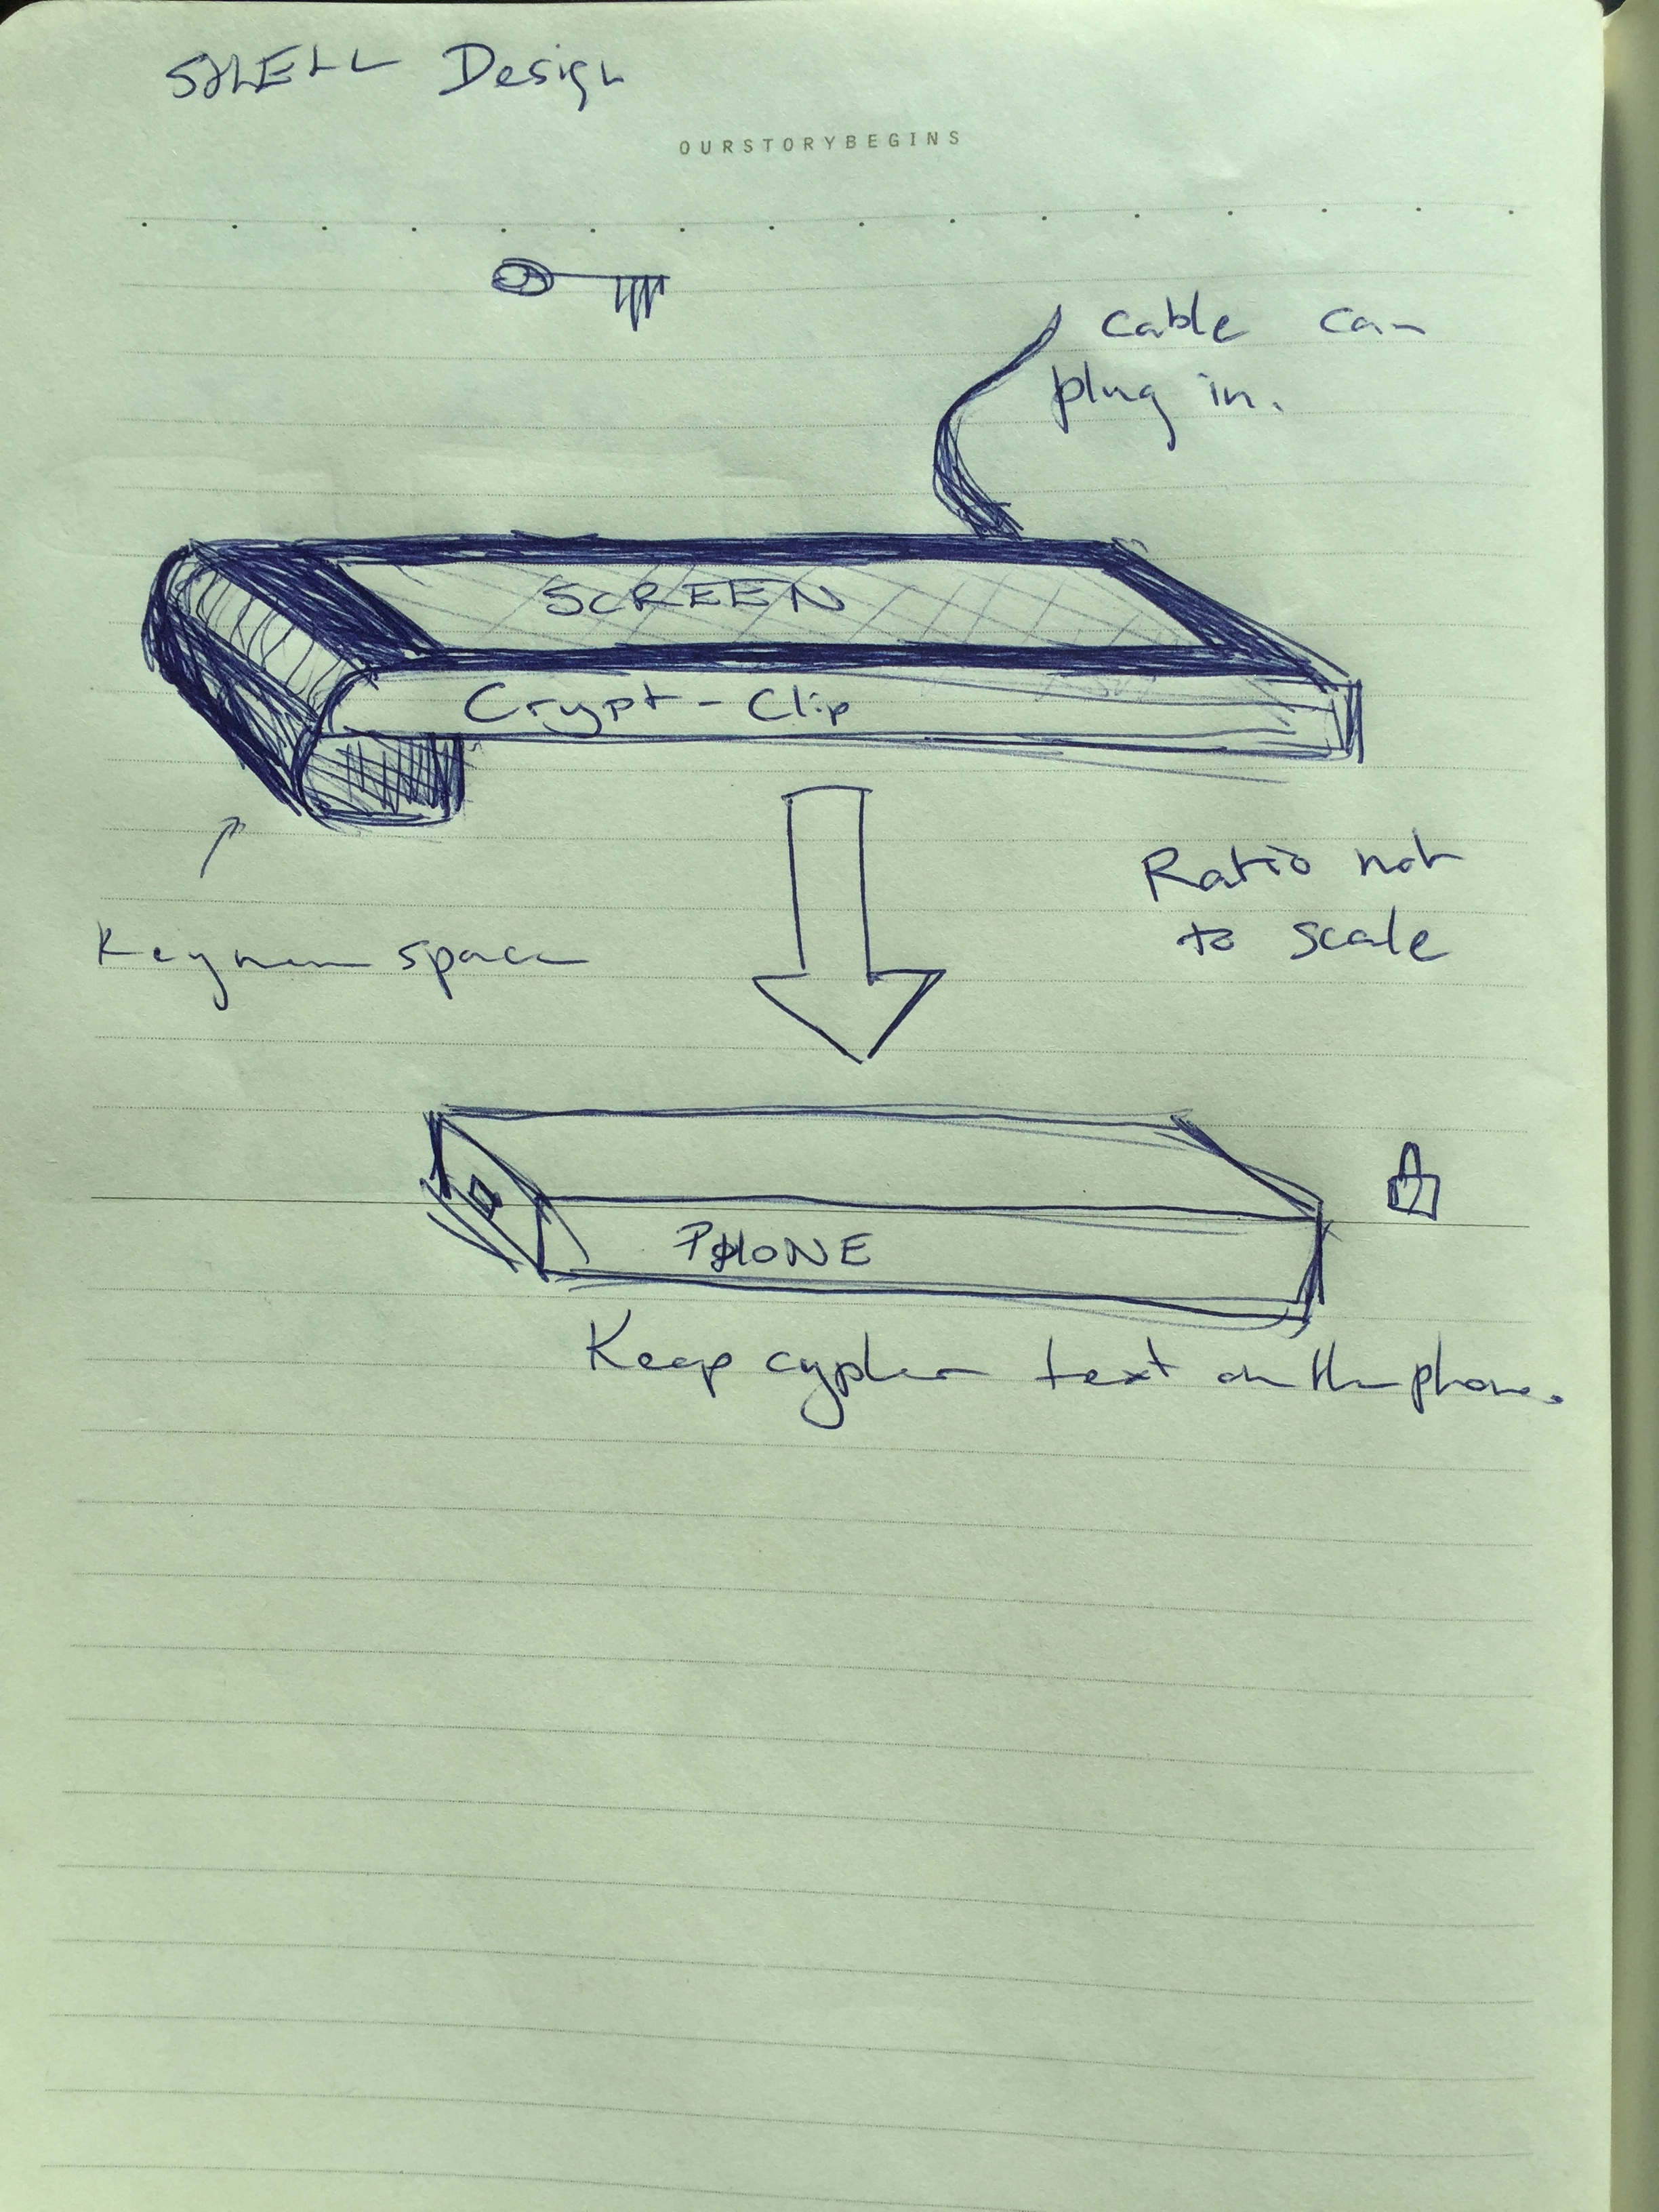 SHELL Design
OURSTORYBEGINS
cable can
plug in.
SCREEN
Crypt-Clip
Ratio not
to scale
space
PHONE
Keep cypher text on the phone.